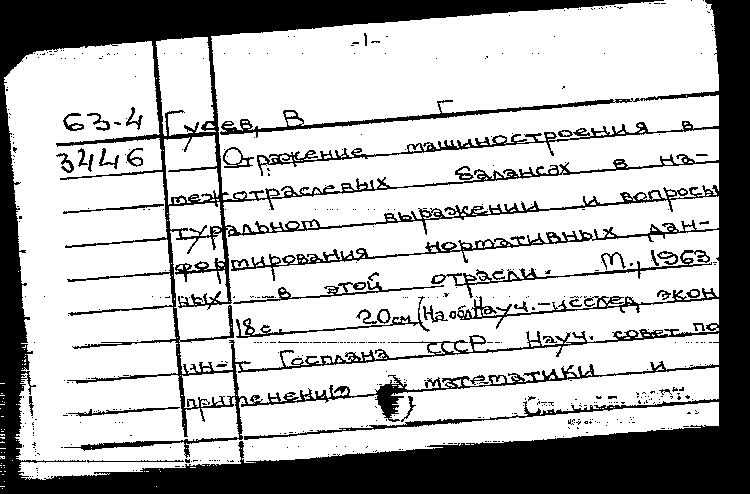 -1-
63-4 Гусев, В Г
3446 Отражение машиностроения в
межотраслевых балансах в на-
туральном выражении и вопросы
формирования нормативных дан-
ных в этой отрасли. М., 1963.
18 с. 20 см (На обл. Науч.-исслед. экон
ин-т Госплана СССР. Науч. совет по
применению математики и
См. след. карт.